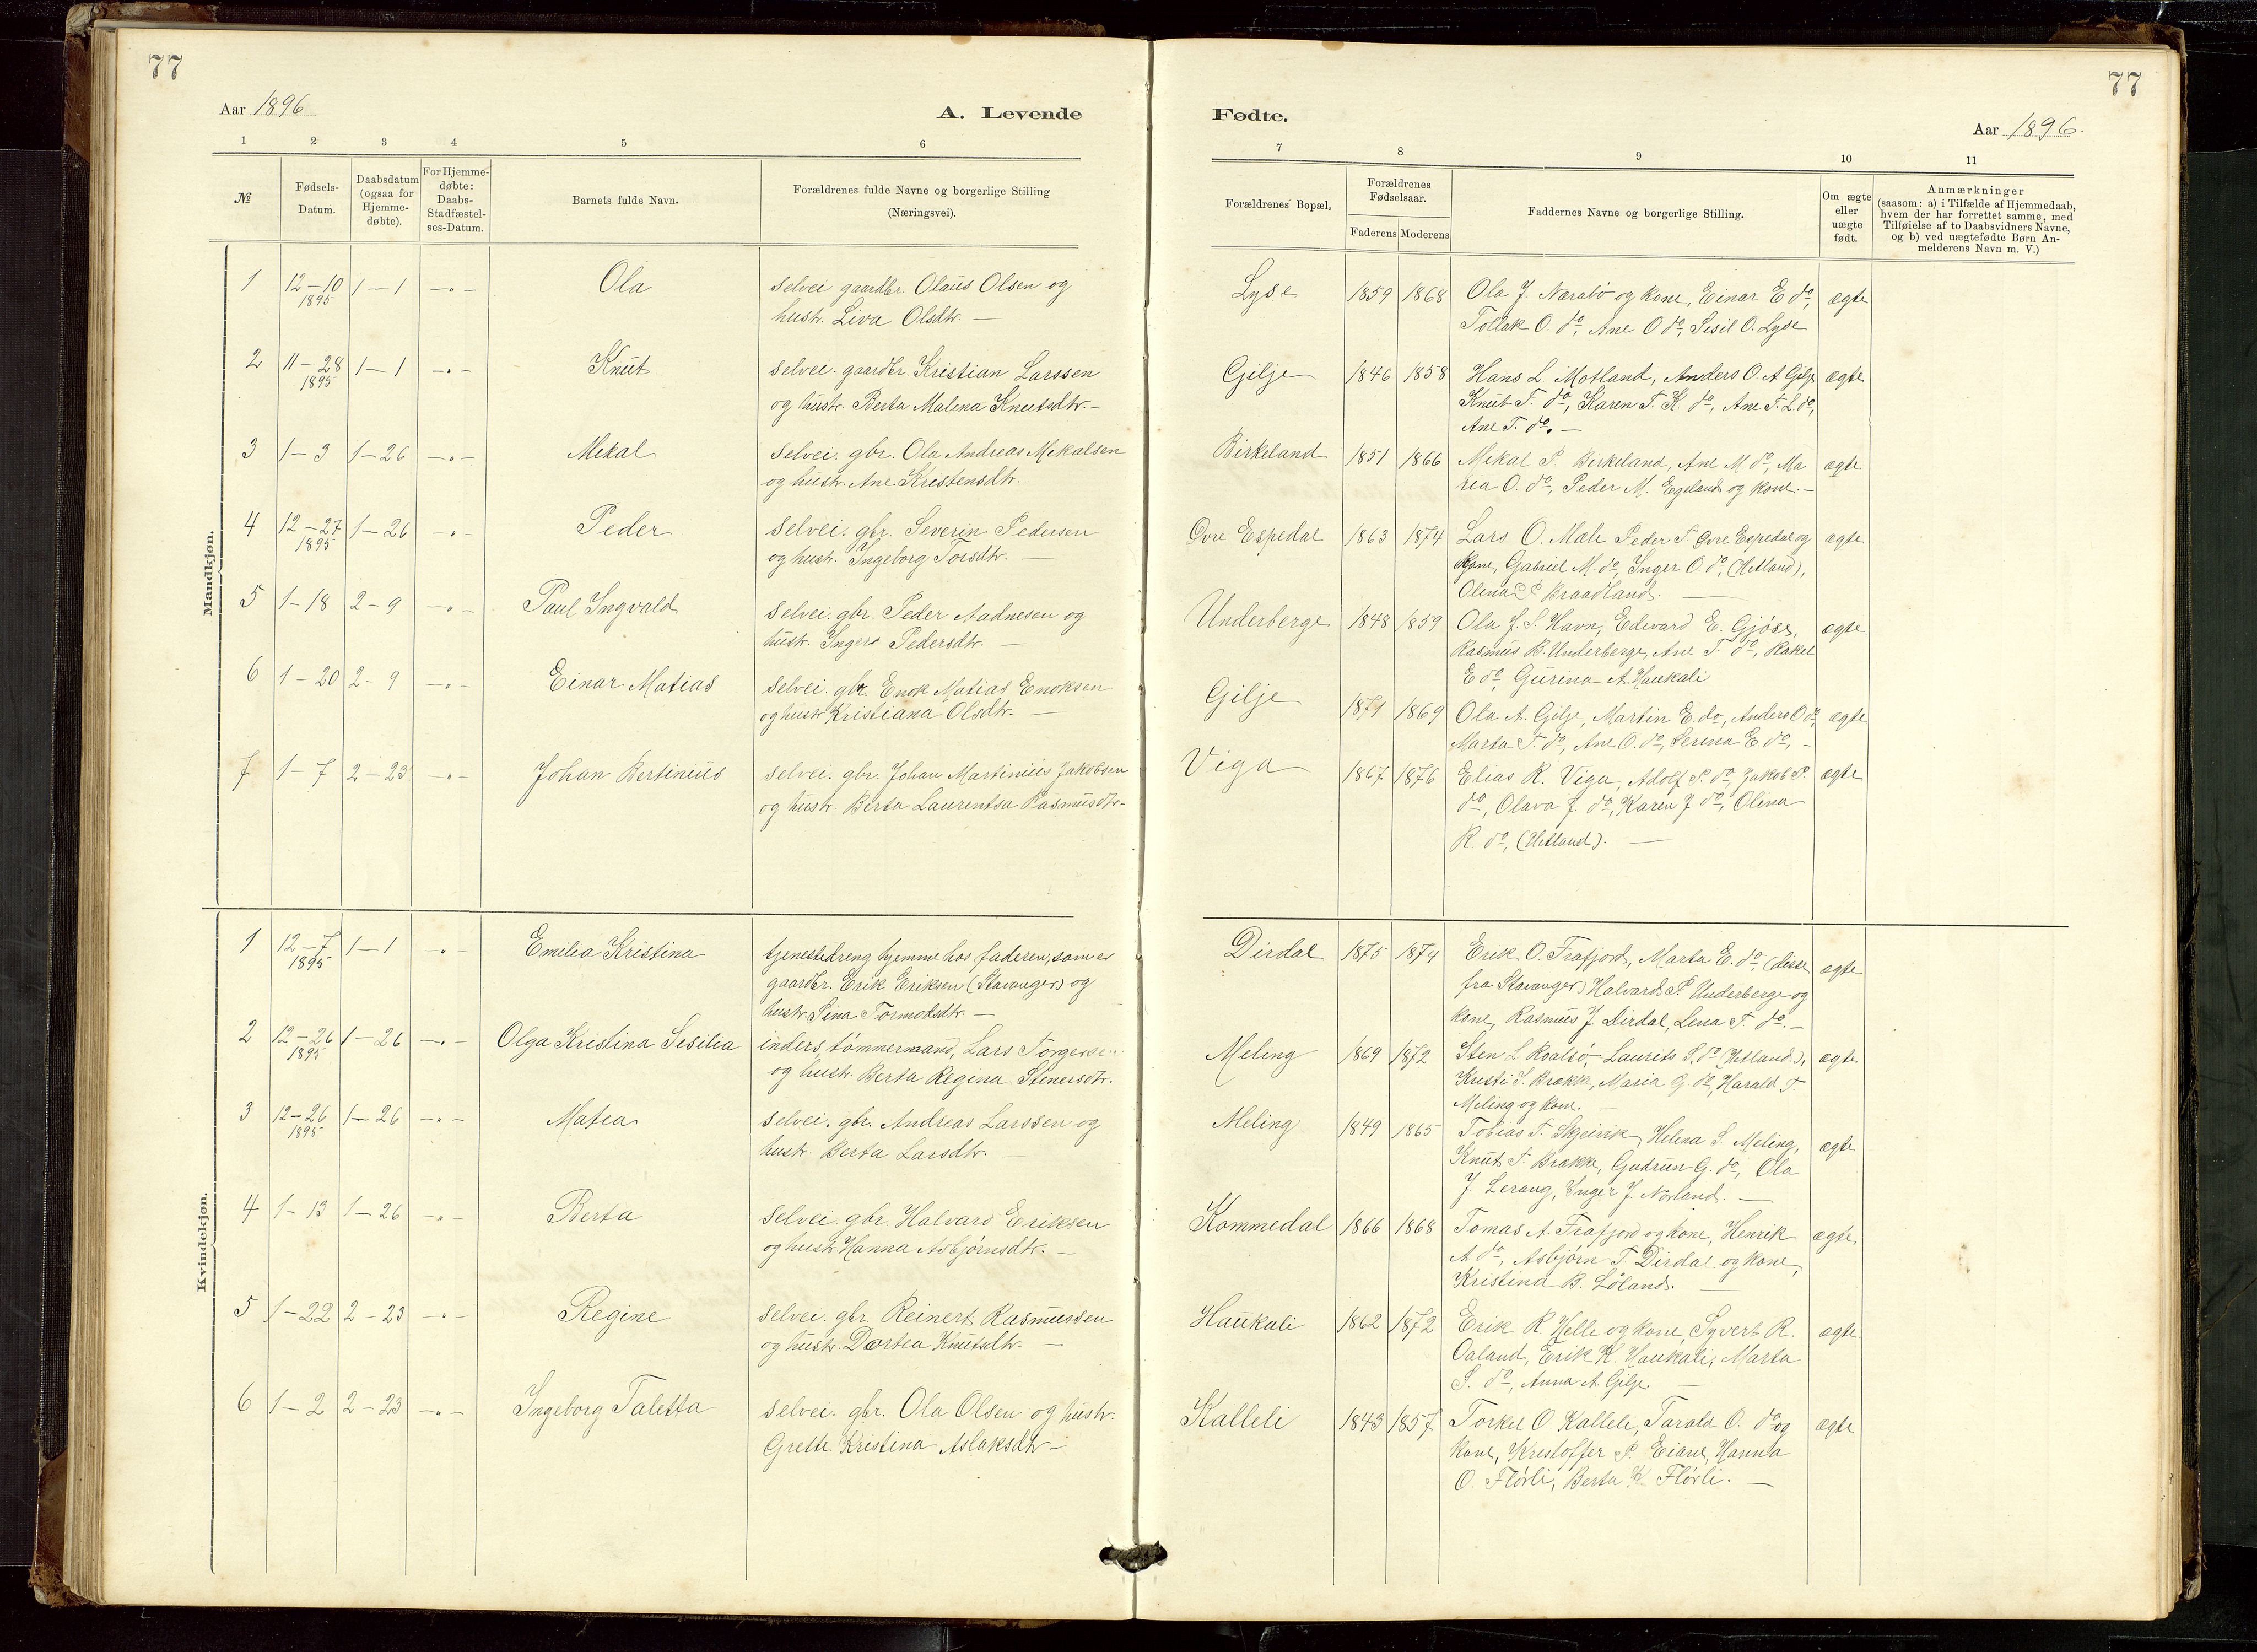 77
Aar 1896
A. Levende
1 2 3 4 5 6
№
Fødsels-
Datum.
Daabsdatum
(ogsaa for
Hjemme-
døbte).
For Hjemme-
døbte:
Daabs-
Stadfæstel-
ses-Datum.
Barnets fulde Navn.
Forældrenes fulde Navne og borgerlige Stilling
(Næringsvei).
Mandkjøn.
1 12-10 1-1 -"- Ola selvei gaardbr. Olaus Olsen og
1895 hustr. Liva Olsdtr. —
2 11-28 1-1 -"- Knut selvei. gaardbr. Kristian Larssen
1895 og hustr. Berta Malena Knutsdtr. —
3 1-3 1-26 -"- Mikal selvei. gbr. Ola Andreas Mikalsen
og hustr. Ane Kristensdtr.
4 12-27 1-26 -"- Peder selvei. gbr. Severin Pedersen
1895 og hustr. Ingeborg Torsdtr. —
5 1-18 2-9 -"- Paul Ingvald selvei. gbr. Peder Aadnesen og
hustr. Inger Pedersdtr. —
6 1-20 2-9 -"- Einar Matias selvei. gbr. Enok Matias Enoksen
og hustr Kristiana Olsdtr. —
7 1-7 2-23 -"- Johan Bertinius selvei. gbr. Johan Martinius Jakobsen
og hustr. Berta Laurentsa Rasmusdtr-
Kvindekjøn.
1 12-7 1-1 -"- Emilia Kristina tjenestedreng hjemme hos faderen, som er
1895 gaardbr. Erik Eriksen (Stavanger) og
hustr. Sina Tormodsdtr. —
2 12-26 1-26 -"- Olga Kristina Sesilia inders, tømmermand, Lars
1895 og hustr. Berta Regina Stenersdtr.
3 12-26 1-26 -"- Matea selvei. gbr. Andreas Larssen og
1895 hustr. Berta Larsdtr. —
4 1-13 1-26 -"- Berta selvei. gbr. Halvard Eriksen
og hustr. Hanna Asbjørnsdtr. —
5 1-22 2-23 -"- Regine selvei. gbr. Reinert Rasmussen
og hustr. Dortea Knutsdtr. —
6 1-2 2-23 -"- Ingeborg Taletta selvei. gbr. Ola Olsen og hustr.
Grette Kristina Aslaksdtr —
77
Fødte.
Aar 1896.
7 8 9 10 11
Forældrenes Bopæl.
Forældrenes
Fødselsaar.
Faderens Moderens
Faddernes Navne og borgerlige Stilling.
Om ægte
eller
uægte
født.
Anmærkninger
(saasom: a) i Tilfælde af Hjemmedaab,
hvem der har forrettet samme, med
Tilføielse af to Daabsvidners Navne,
og b) ved uægtefødte Børn An-
melderens Navn m. V.)
Lyse 1859 1868 Ola J. Narabø og kone, Einar E do, ægte
Tollak O. do, Ane O do, Sisil O. Lyse
Gilje 1846 1858 Hans L. Motland, Anders O. A Gilje ægte
Knut T. do, Karen T. K. do, Ane T. L. do,
Ane T. do. —
Birkeland 1851 1866 Mikal P. Birkeland, Ane M. do, Ma ægte
ria O. do, Peder M. Egeland og kone. —
Øvre Espedal 1863 1874 Lars O. Mæle Peder T. Øvre Espedal og ægte
kone, Gabriel M. do, Inger O. do, (Hetland),
Olina P Braadland. —
Underberge 1848 1859 Ola J. S. Havn, Edevard E. Gjøse, ægte
Rasmus B. Underberge, Ane T. do, Rakel
E do, Gurina A. Haukali
Gilje 1871 1869 Ola A. Gilje, Martin E. do, Anders O do, ægte
Marta T. do, Ane O. do, Serina E. do, -
Viga 1867 1876 Elias R. Viga, Adolf P. do, Jakob P. ægte
do, Olava J. do, Karen J do, Olina
R. do, (Hetland). —
Dirdal 1875 1874 Erik O. Frafjord, Marta E. do, (disse ægte
fra Stavanger) Halvard P. Underberge og
kone, Rasmus J. Dirdal, Lena T. do. —
Meling 1869 1872 Sten L Roalsø, Laurits S. do (Hetland), ægte
Kristi S. Brække, Maria G. do, Harald T.
Meling og kone. —
Meling 1849 1865 Tobias T. Skjeivik, Helena S. Meling, ægte
Knut T. Brække, Gudrun G. do, Ola
J Lerang, Inger J. Norland. —
Kommedal 1866 1868 Tomas A. Frafjord og kone, Henrik ægte
A. do, Asbjørn T. Dirdal og kone,
Kristina B. Løland. —
Haukali 1862 1872 Erik R. Helle og kone, Syvert R. ægte
Oaland, Erik K. Haukali, Marta
S. do, Anna A. Gilje. —
Kalleli 1843 1857 Torkel O Kalleli, Tarald O. do og ægte
kone, Kristoffer P. Eiane, Hanna
O. Flørli, Berta K. Flørli. —